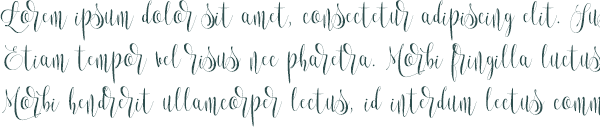 Lorem ipsum dolor sit amet, consectetur adipiscing elit. Fu
Etiam tempor vel risus nec pharetra. Morbi fringilla luctus
Morbi hendrerit ullamcorper lectus, id interdum lectus comm